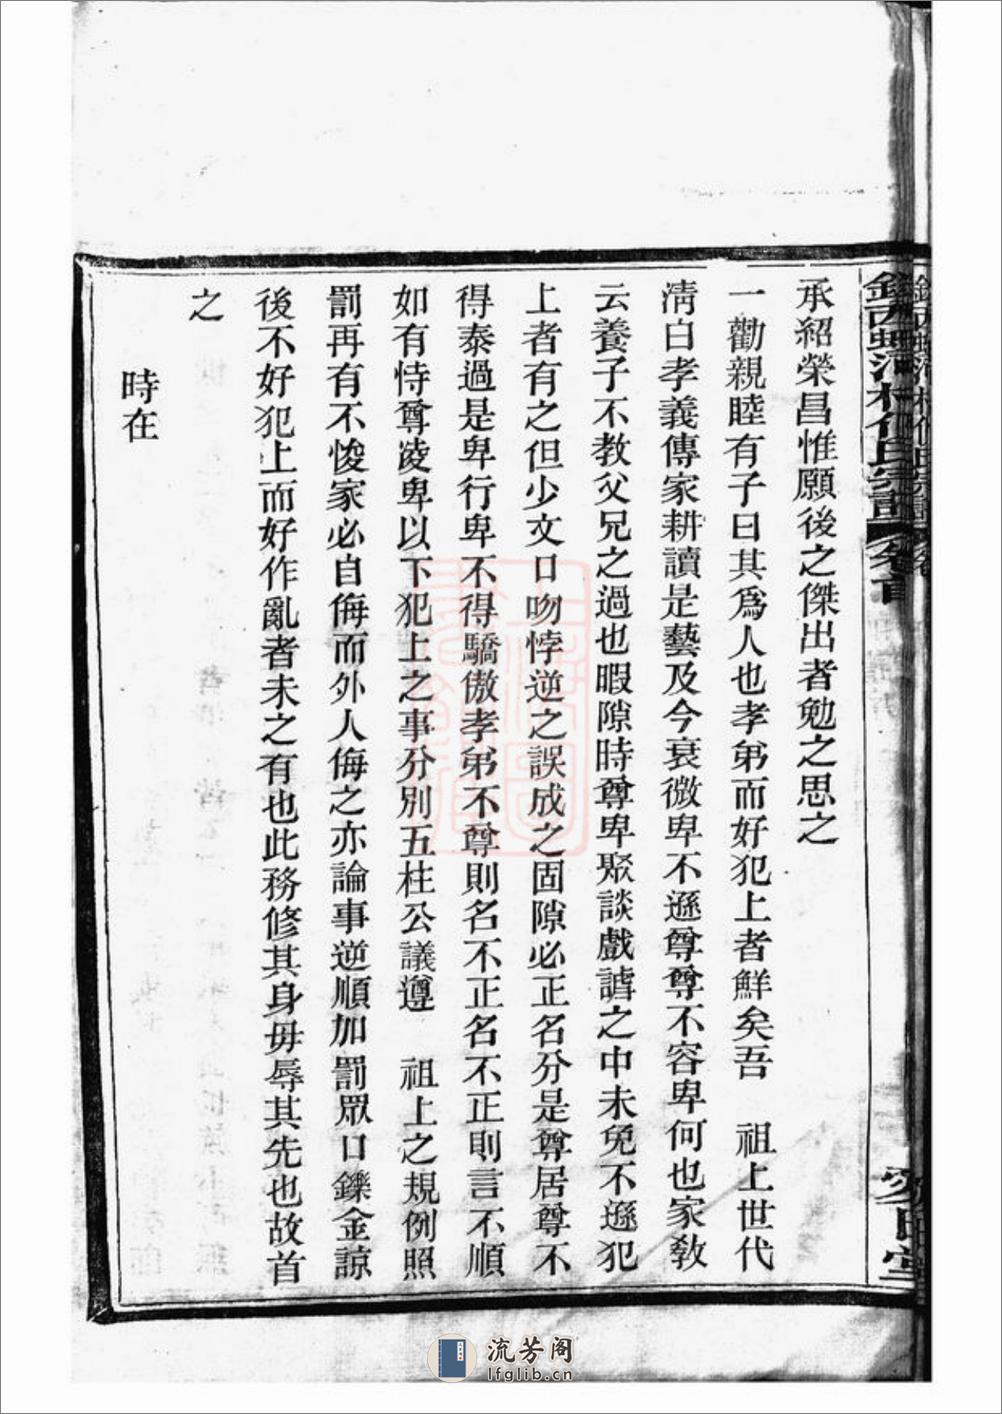 承紹榮昌惟願後之傑出者勉之思之
一勸親睦有子曰其爲人也孝弟而好犯上者鮮矣吾　祖上世代
淸白孝義傳家耕讀是藝及今衰微卑不遜尊尊不容卑何也家敎
云養子不教父兄之過也暇隙時尊卑聚談戲謔之中未免不遜犯
上者有之但少文口吻悖逆之誤成之固隙必正名分是尊居尊不
得泰過是卑行卑不得驕傲孝弟不尊則名不正名不正則言不順
如有恃尊凌卑以下犯上之事分別五柱公議遵　祖上之規例照
罰再有不悛家必自侮而外人侮之亦論事逆順加罰眾口鑠金諒
後不好犯上而好作亂者未之有也此務修其身毋辱其先也故首
之
時在
流芳阁
lfglib.cn